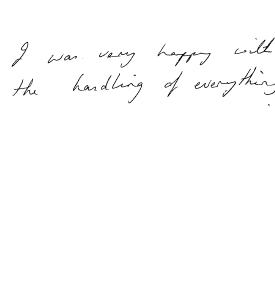 I was very happy with
the handling of everything